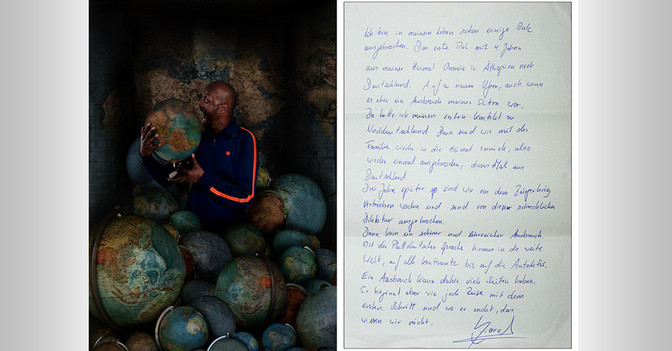 Ich bin in meinem Leben schon einige Male
ausgebrochen. Das erste Mal mit 4 Jahren
aus meiner Heimat Oromia in Äthiopien nach
Deutschland. Auf zu neuen Ufern, auch wenn
es eher ein Ausbruch meiner Eltern war.
Da hatte ich meinen ersten Kontakt zu
Norddeutschland. Dann sind wir mit der
Familie wieder in die Heimat zurück, aber
wieder einmal ausgebrochen, diesmal aus
Deutschland
Drei Jahre später sind wir von dem Bürgerkrieg
vertrieben worden und sind von dieser schrecklichen
Diktatur ausgebrochen.
Dann kam ein schöner und lehrreicher Ausbruch.
Mit der Plattdeutschen Sprache hinaus in die weite
Welt, auf alle Kontinente bis auf die Antarktis.
Ein Ausbruch kann daher viele Seiten haben.
Er beginnt aber wie jede Reise mit dem
ersten Schritt und wo er endet, das
wissen wir nicht.